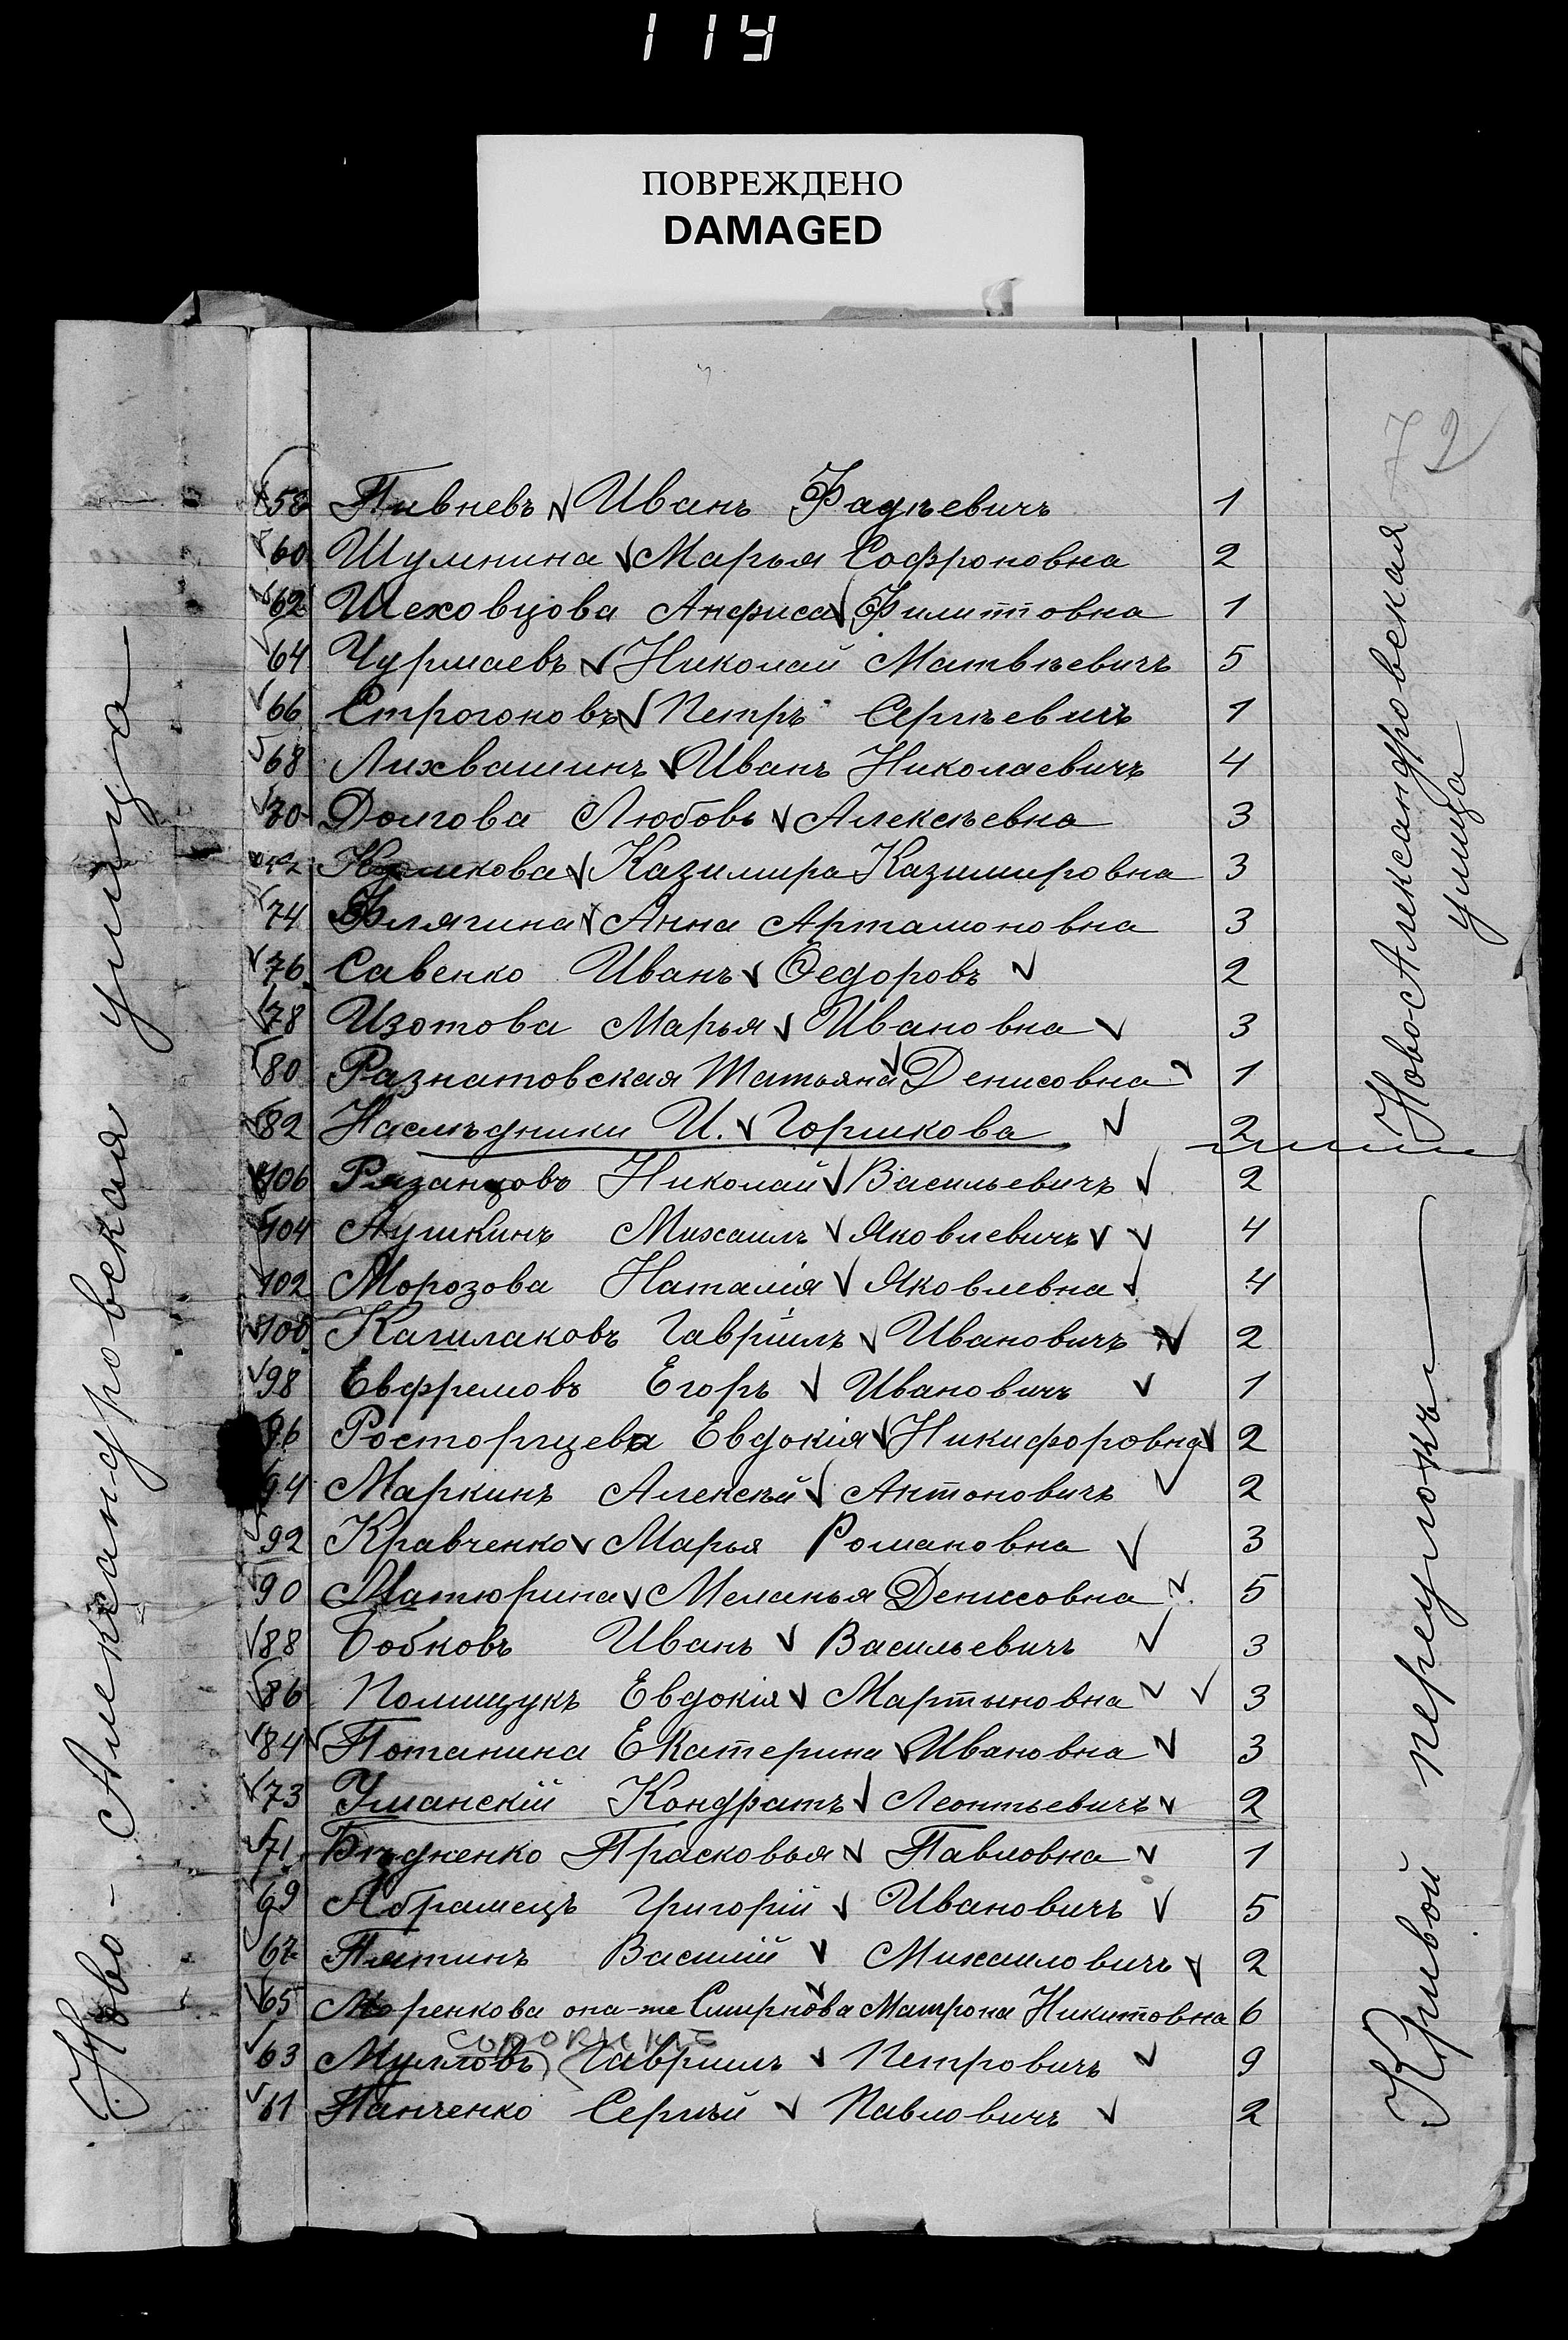 114
ПОВРЕЖДЕНО
DAMAGED
72
Ново-Александровская улица
58 Пивневъ Иванъ Фадѣевичъ 1
60 Шумнина Марья Софроновна 2
62 Шеховцова Анфиса Филиповна 1
64 Чурмаевъ Николай Матвѣевичъ 5
66 Строгоновъ Петръ Сергѣевичъ 1
68 Лихвашинъ Иванъ Николаевичъ 4
70 Долгова Любовь Алексѣевна 3
72 Казимира Казимировна 3
74 Флягина Анна Артамоновна 3
76 Савенко Иванъ Ѳедоровъ 2
78 Изотова Марья Ивановна 3
80 Разнатовская Татьяна Денисовна 1
82 Наслѣдники И. Горшкова 2
106 Рязанцовъ Николай Васильевичъ 2
104 Аушкинъ Михаилъ Яковлевичъ 4
102 Морозова Наталія Яковлевна 4
100 Кашлаковъ Гавріилъ Ивановичъ 2
98 Евфремовъ Егоръ Ивановичъ 1
96 Росторгцева Евдокія Никифоровна 2
94 Маркинъ Алексѣй Антоновичъ 2
92 Кравченко Марья Романовна 3
90 Матюрина Меланья Денисовна 5
88 Бобковъ Иванъ Васильевичъ 3
86 Полищукъ Евдокія Мартыновна 3
84 Потанина Екатерина Ивановна 3
73 Уманскій Кондратъ Леонтьевичъ 2
71 Бѣдненко Прасковья Павловна 1
69 Абрамецъ Григорій Ивановичъ 5
67 Пятинъ Василій Михаиловичъ 2
65 Моренкова она-же Смирнова Матрона Никитовна 6
63 Мулловъ Гавриилъ Петровичъ 9
61 Панченко Сергѣй Павловичъ 2
Ново-Александровская
улица
Кривой переулокъ